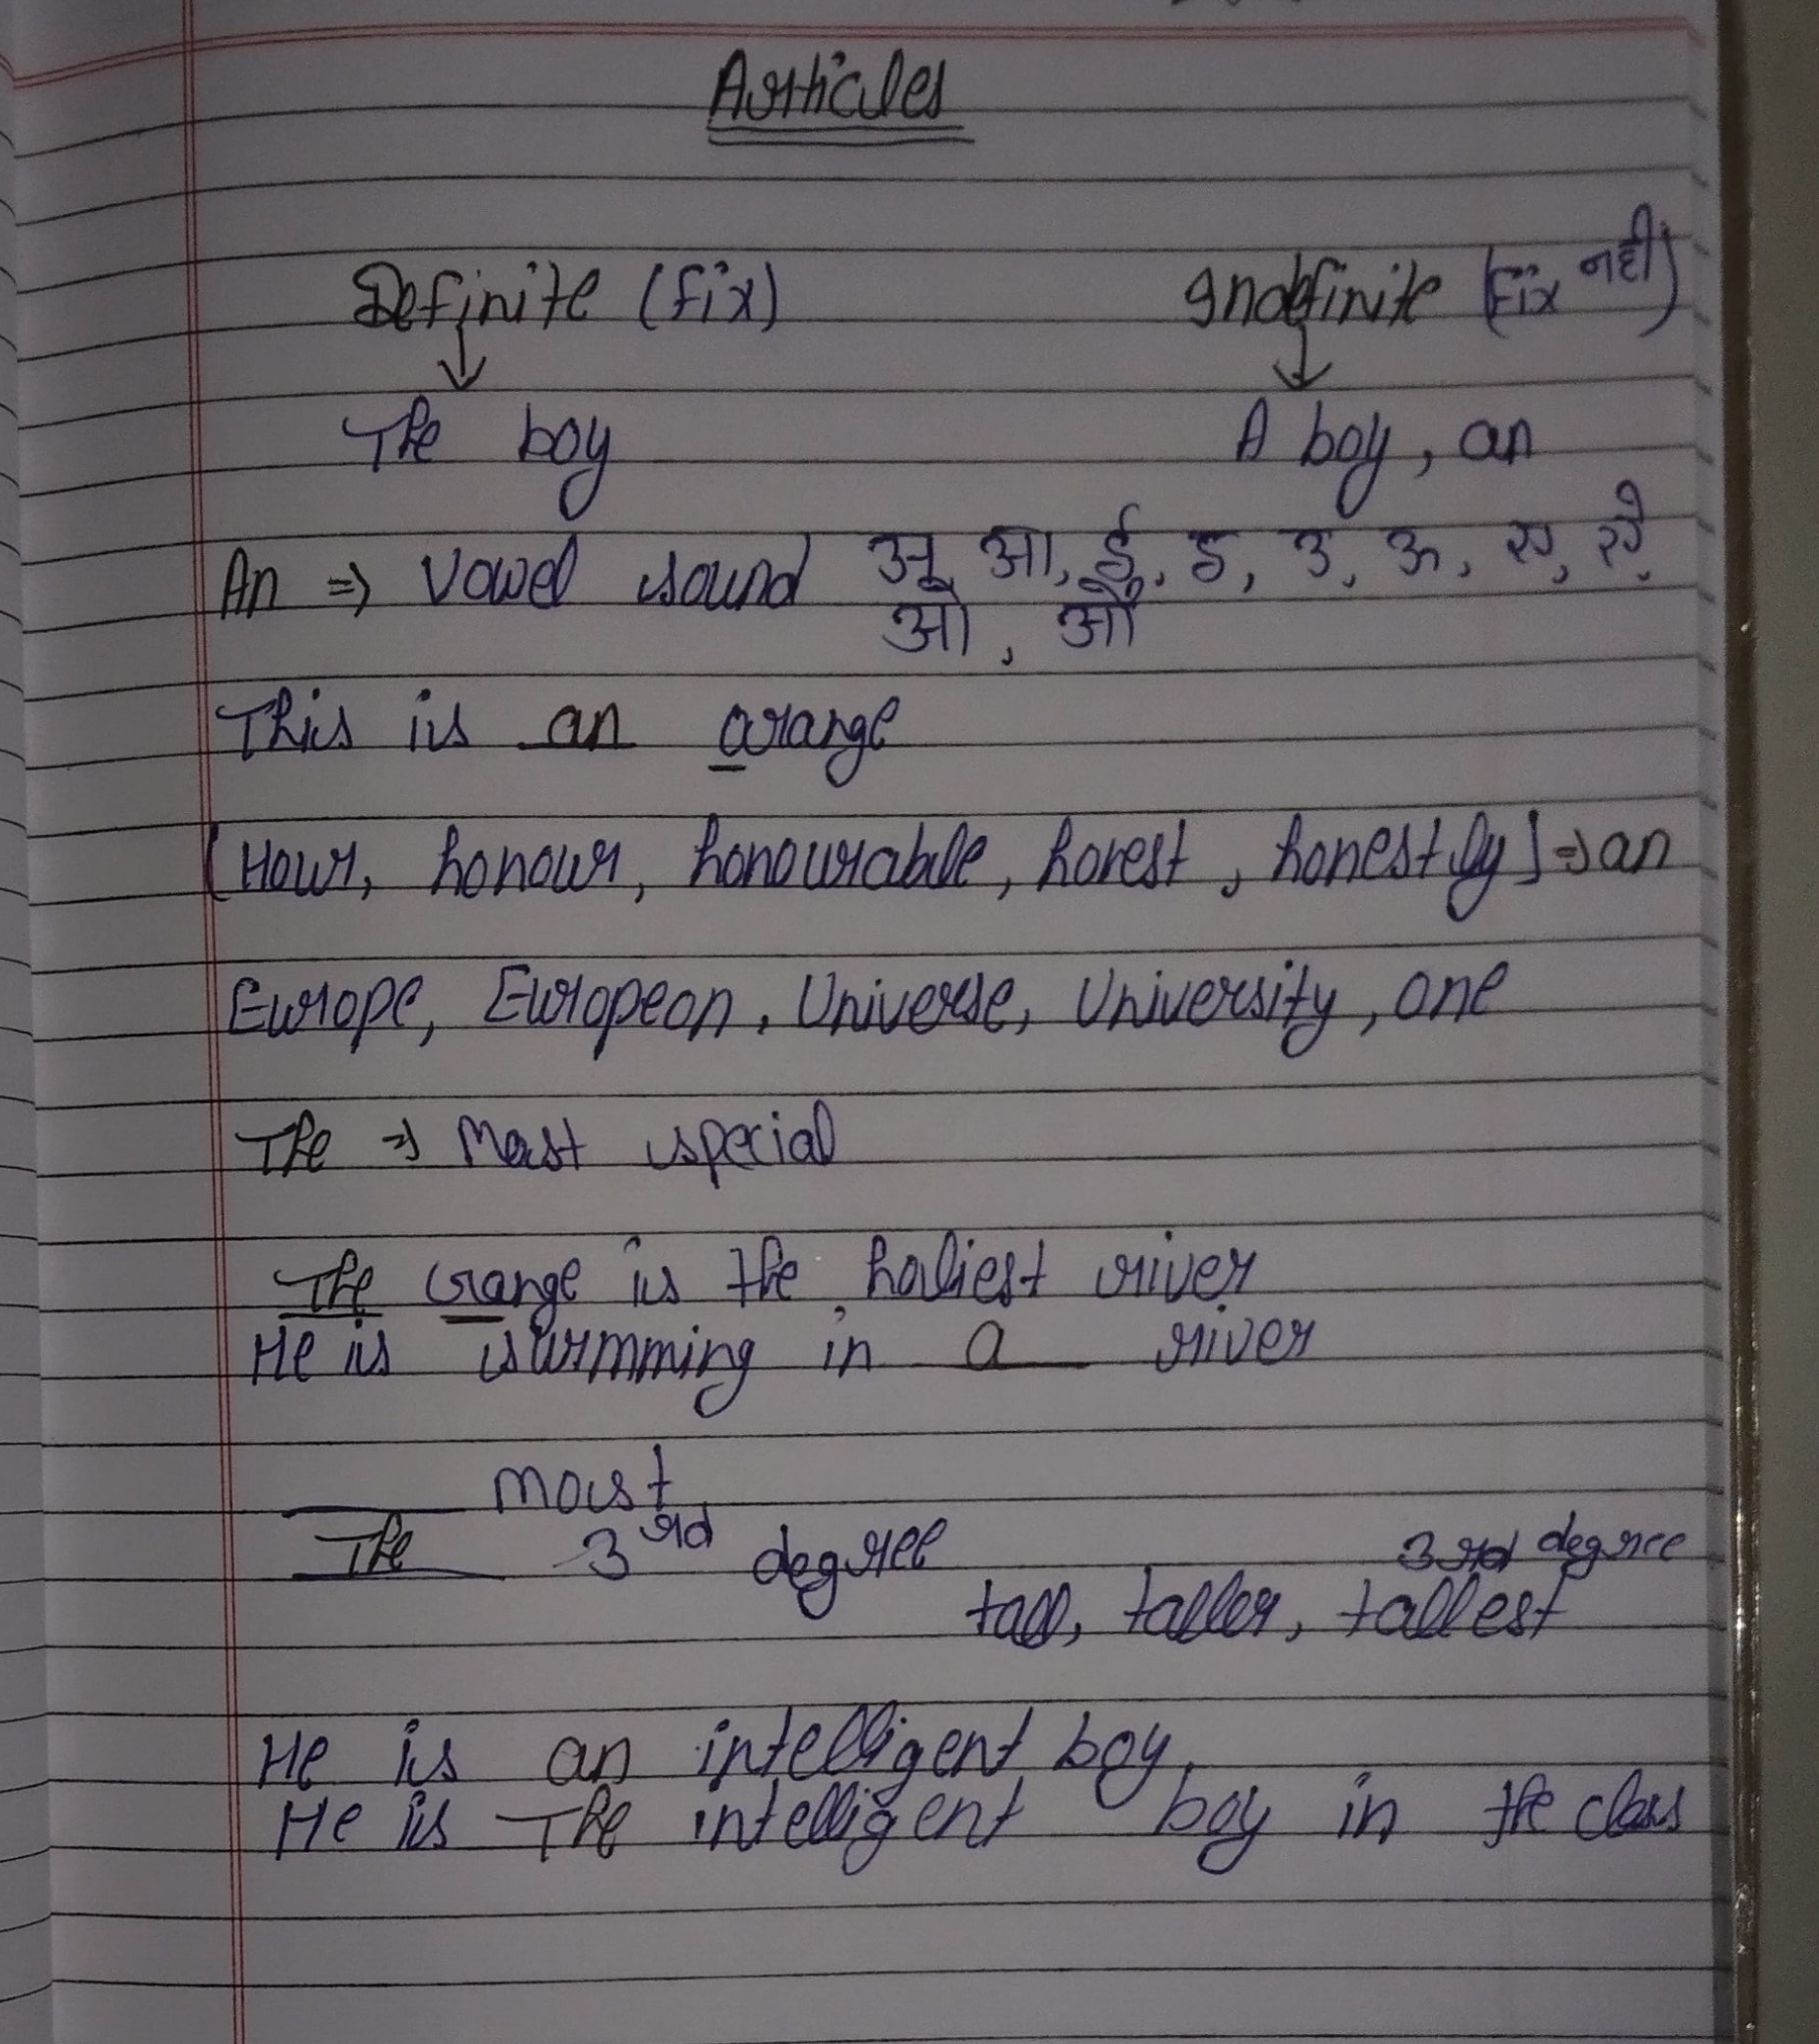 Articles
Definite (fix) Indefinite (fix नही)
↓ ↓
The boy A boy, an
An => Vowel sound अ, आ, ई, इ, उ, ऊ, ए, ऐ,
ओ, औ
This is an orange
[Hour, honour, honourable, honest, honestly] => an
Europe, European, Universe, University, one
The => Most special
The Gange is the holiest river
He is swimming in a river
____ most
The 3rd degree 3rd degree
tall, taller, tallest
He is an intelligent boy.
He is The intelligent boy in the class